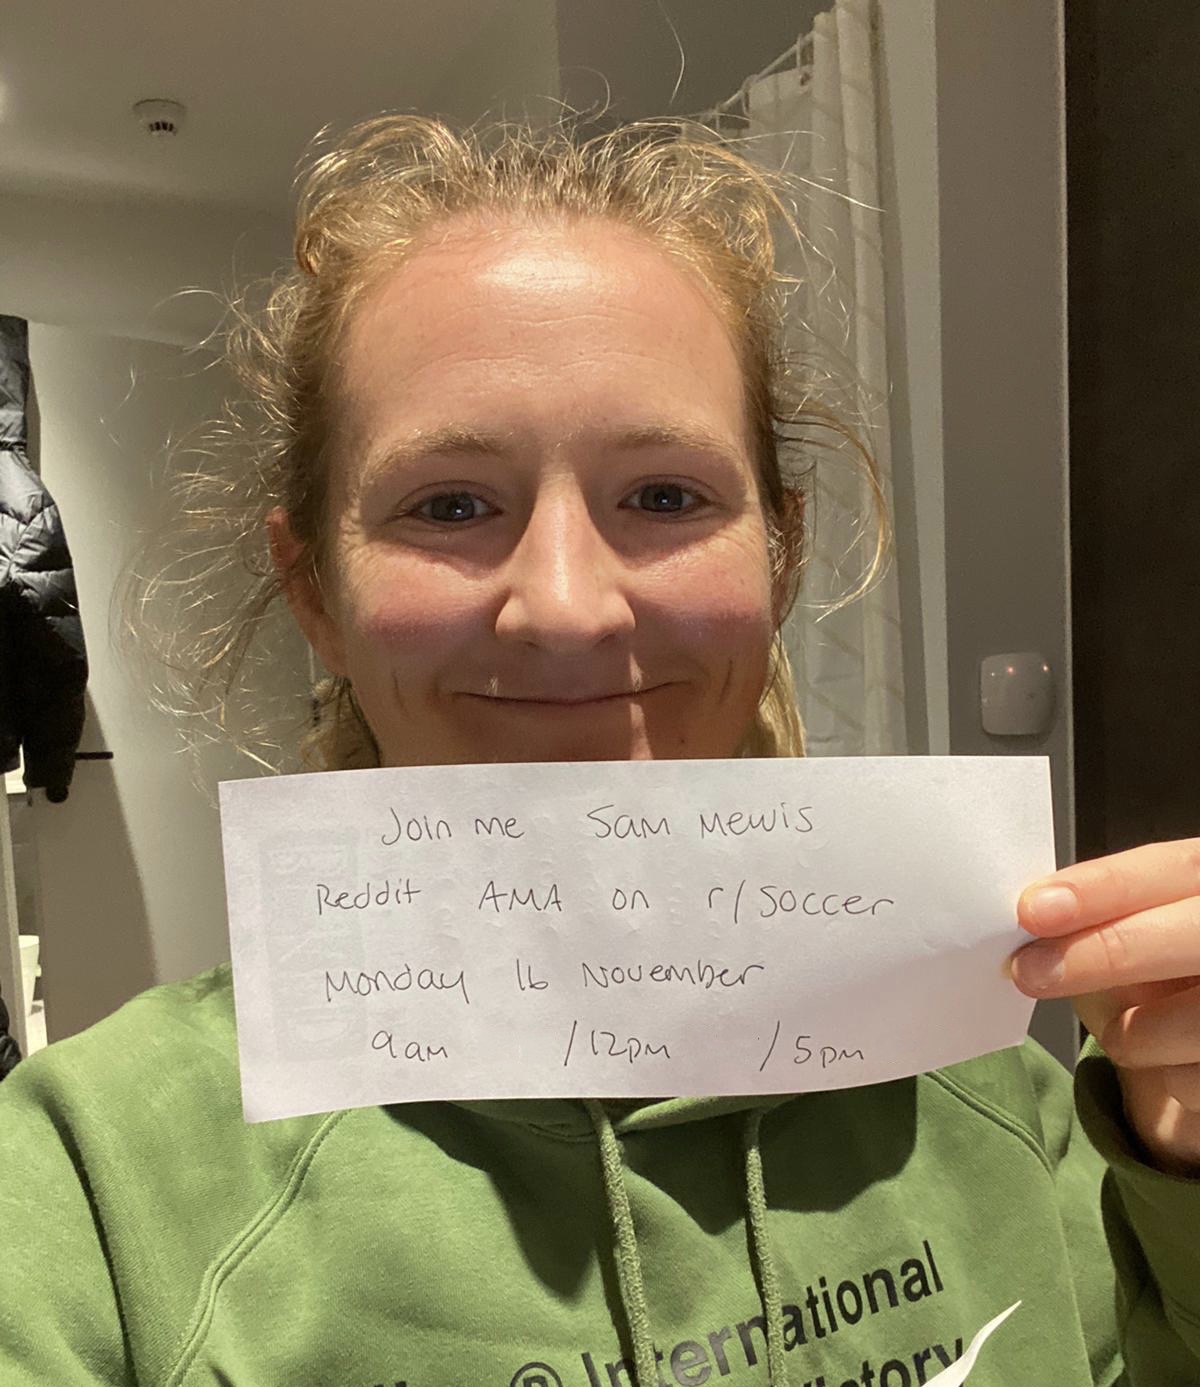 Join me Sam Mewis
Reddit AMA on r/soccer
Monday 16 November
9am /12pm /5pm
® International
Victory